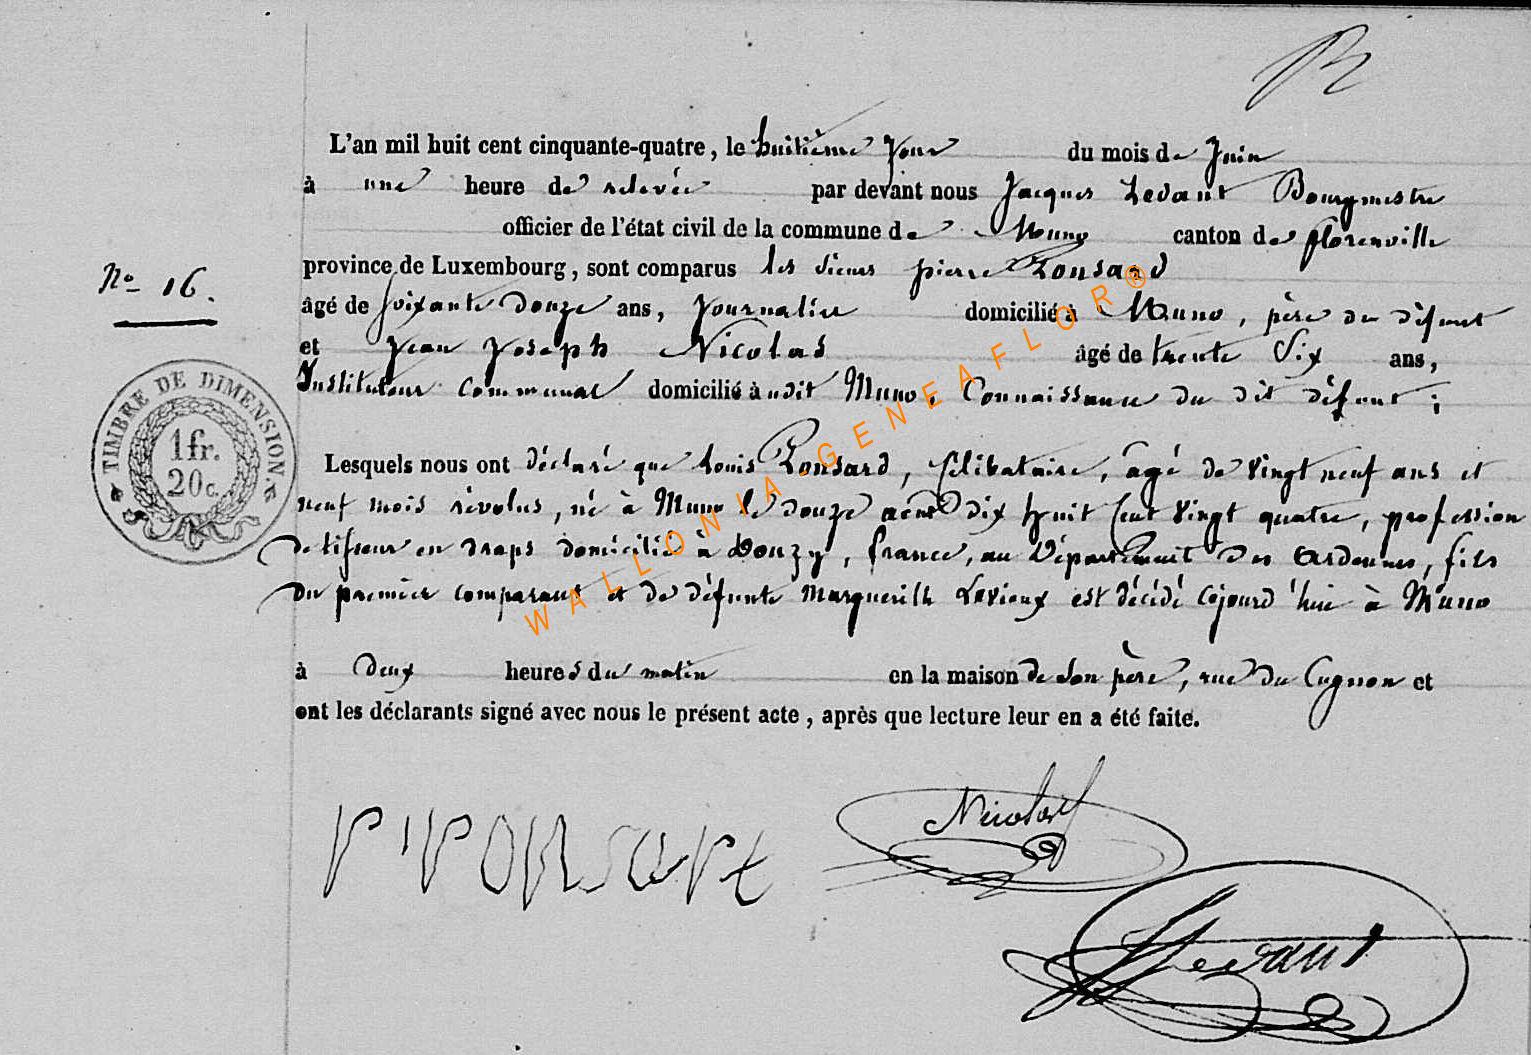 L'an mil huit cent cinquante-quatre, le huitième jour du mois de Juin
à une heure de relevée par devant nous Jacques Ledant Bourgmestre
officier de l'état civil de la commune de Muno canton de florenville
province de Luxembourg, sont comparus les sieurs pierre Ponsard
âgé de soixante douze ans, journalier domicilié à Muno, père du défunt
et Jean Joseph Nicolas âgé de trente six ans,
Instituteur communal domicilié à udit Muno, Connaissance du dit défunt ;
No 16.
TIMBRE DE DIMENSION.
1 fr.
20 c.
Lesquels nous ont déclaré que Louis Ponsard, Célibataire, âgé de vingt neuf ans et
neuf mois révolus, né à Muno le douze août dix huit Cent vingt quatre, profession
de tisseur en draps domicilié à Douzy, france, au Département des Ardennes, fils
du premier comparant et de défunte Margueritte Levieux est décédé cejourd'hui à Muno
à deux heures du matin en la maison de son père, rue du Cugnon et
ont les déclarants signé avec nous le présent acte, après que lecture leur en a été faite.
P PONSart Nicolas
JLedant
WALLONIA-GENEAFLOR®